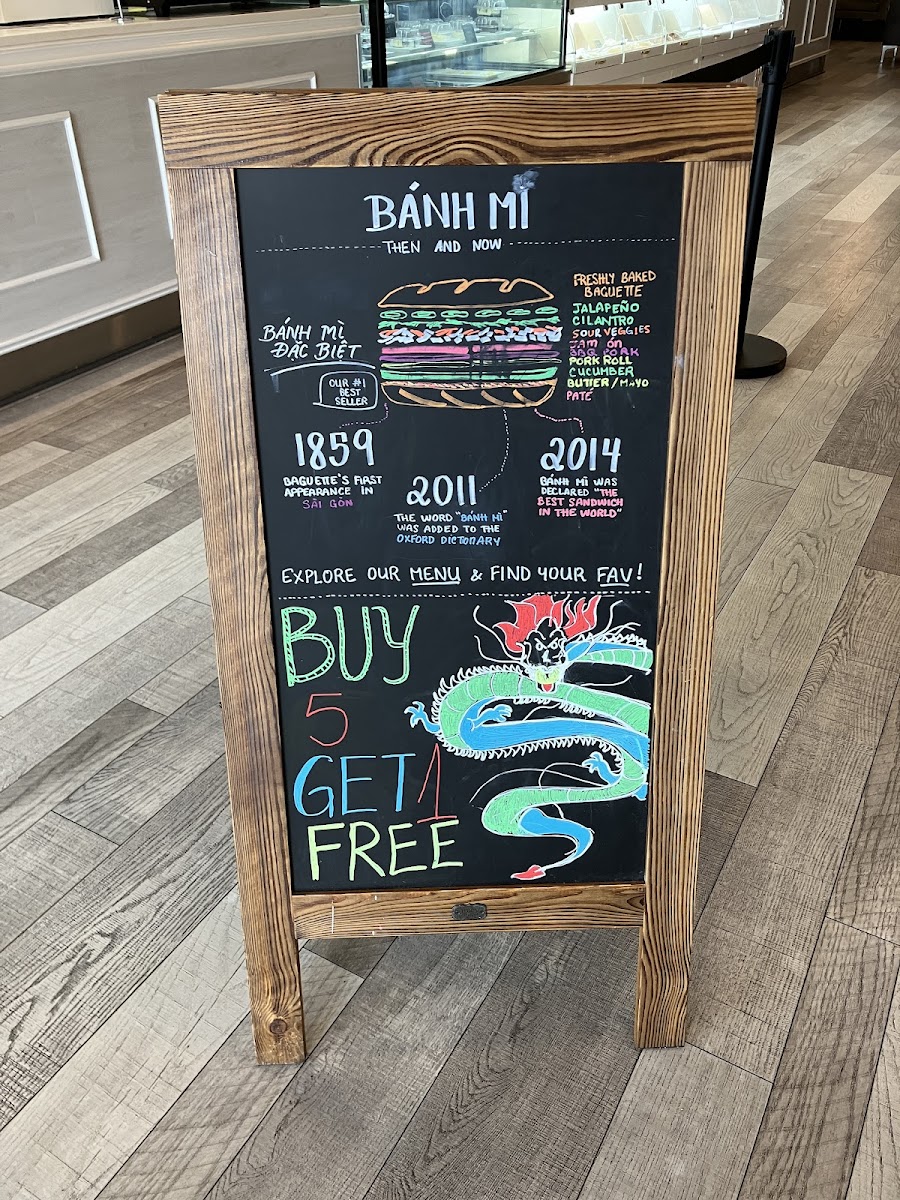 BÁNH MÌ
THEN AND NOW
FRESHLY BAKED
BAGUETTE
JALAPEÑO
CILANTRO
SOUR VEGGIES
JAM ON
BBQ PORK
PORK ROLL
CUCUMBER
BUTTER/MAYO
PATÉ
BÁNH MÌ
ĐẶC BIỆT
OUR #1
BEST
SELLER
1859
BAGUETTE'S FIRST
APPEARANCE IN
SÀI GÒN
2011
THE WORD "BÁNH MÌ"
WAS ADDED TO THE
OXFORD DICTONARY
2014
BÁNH MÌ WAS
DECLARED "THE
BEST SANDWICH
IN THE WORLD"
EXPLORE OUR MENU & FIND YOUR FAV!
BUY
5
GET 1
FREE